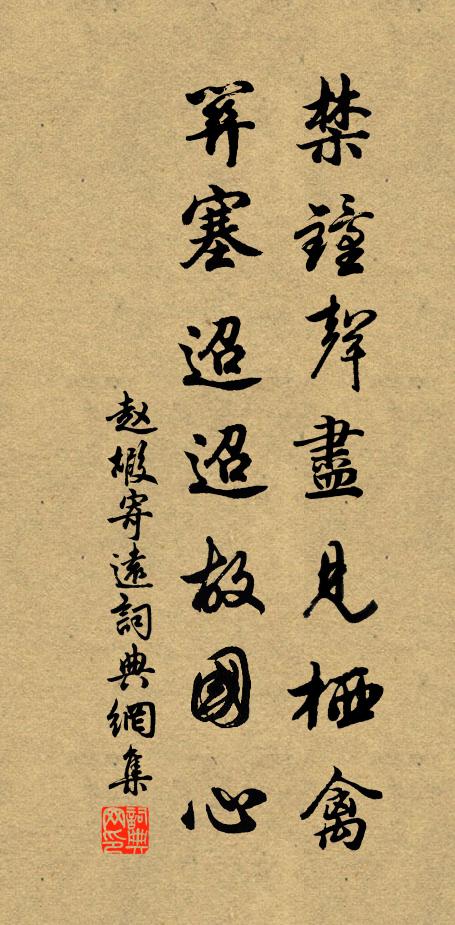 禁鐘聲盡見栖禽
關塞迢迢故國心
赵嘏寄遠詞典網集
詞典网印